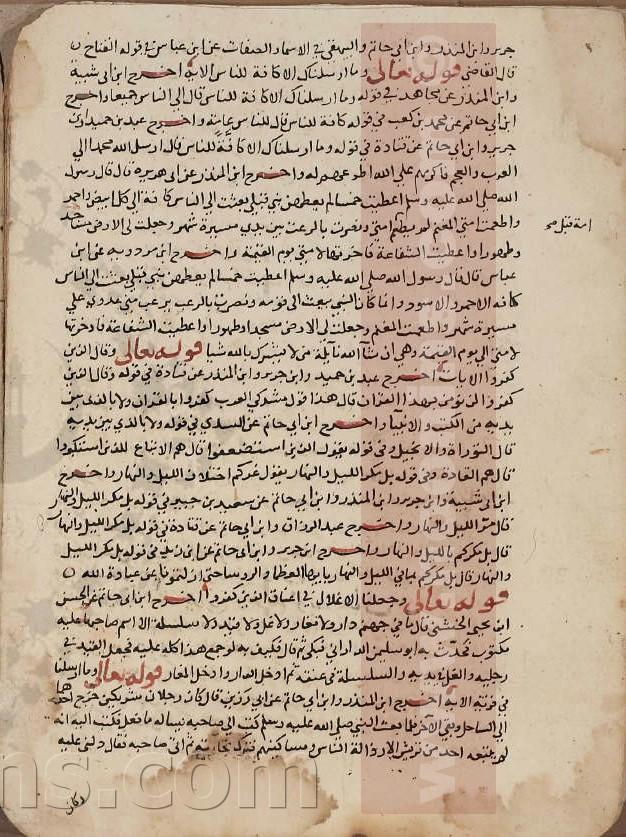 جرير وابن المنذر وابن ابي حاتم والبيهقي في الاسماء والصفات عن ابن عباس في قوله الفتاح
قال القاضي قوله تعالى وما ارسلناك الا كافة للناس الاية اخرج ابن ابي شيبة
وابن المنذر عن مجاهد في قوله وما ارسلناك الا كافة للناس قال الي الناس جميعا واخرج
ابن ابي حاتم عن محمد بن كعب في قوله كافة للناس قال للناس عامة واخرج عبد بن حميد وابن
جرير وابن ابي حاتم عن قتادة في قوله وما ارسلناك الا كافة للناس قال ارسل الله محمدا الي
العرب والعجم فاكرمهم علي الله اطوعهم له واخرج ابن المنذر عن ابي هريرة قال قال رسول
الله صلي الله عليه وسلم اعطيت خمسا لم يعطهن نبي قبلي بعثت الي الناس كافة الي كل ابيض واحمر
واطعمت امتي المغنم لم يطعم امتي ونصرت بالرعب من بين يدي مسيرة شهر وجعلت لي الارض مسجدا
امة قبل
وطهورا واعطيت الشفاعة فاخرتها لامتي يوم القيمة واخرج ابن مردويه عن ابن
عباس قال قال رسول الله صلي الله عليه وسلم اعطيت خمسا لم يعطهن نبي قبلي بعثت الي الناس
كافة الاحمر والاسود وانما كان النبي يبعث الي قومه ونصرت بالرعب يرعب مني عدوي علي
مسيرة شهر واطعمت المغنم وجعلت لي الارض مسجدا وطهورا واعطيت الشفاعة فادخرتها
لامتي الي يوم القيمة وهي ان شا الله نايلة من لا يشرك بالله شيا قوله تعالى وقال الذين
كفروا الايات اخرج عبد بن حميد وابن جرير وابن المنذر عن قتادة في قوله وقال الذين
كفروا لن نؤمن بهذا القران قال هذا قول مشركي العرب كفروا بالقران ولا بالذي بين
يديه من الكتب والانبيا واخرج ابن ابي حاتم عن السدي في قوله ولا بالذي بين يديه
قال التوراة والانجيل وفي قوله يقول الذين استضعفوا قال هم الاتباع للذين استكبروا
قال هم القادة وفي قوله بل مكر الليل والنهار يقول غركم اختلاف الليل والنهار واخرج
ابن ابي شيبة وابن جرير وابن المنذر وابن ابي حاتم عن سعيد بن جبير في قوله بل مكر الليل والنهار
قال مر الليل والنهار واخرج عبد الرزاق وابن ابي حاتم عن قتادة في قوله بل مكر الليل والنهار
قال بل مكركم بالليل والنهار واخرج ابن جرير وابن ابي حاتم عن ابن زيد في قوله بل مكر الليل
والنهار قال بل مكركم بنا في الليل والنهار يا ايها العظما والروسا حتي ازلتمونا عن عبادة الله
قوله تعالى وجعلنا الاغلال في اعناق الذين كفروا اخرج ابن ابي حاتم عن الحسن
ابن يحيي الخشني قال ما في جهنم دار ولا مغار ولا غل ولا قيد ولا سلسلة الا اسم صاحبها عليه
مكتوب فحدثت به ابو سليمن الداراني فبكي ثم قال فكيف به لو جمع هذا كله عليه فجعل القيد في
رجليه والغل في يديه والسلسلة في عنقه ثم ادخل الدار وادخل المغار قوله تعالى وما ارسلنا
في قرية الاية اخرج ابن المنذر وابن ابي حاتم عن ابي رزين قال كان رجلان شريكين خرج احدهما
الي الساحل وبقي الاخر فلما بعث النبي صلي الله عليه وسلم كتب الي صاحبه يساله ما فعل فكتب اليه انه
لم يتبعه احد من قريش الا رذالة الناس ومساكينهم فترك تجارته ثم اتي صاحبه فقال دلني عليه
وكان
ns.com